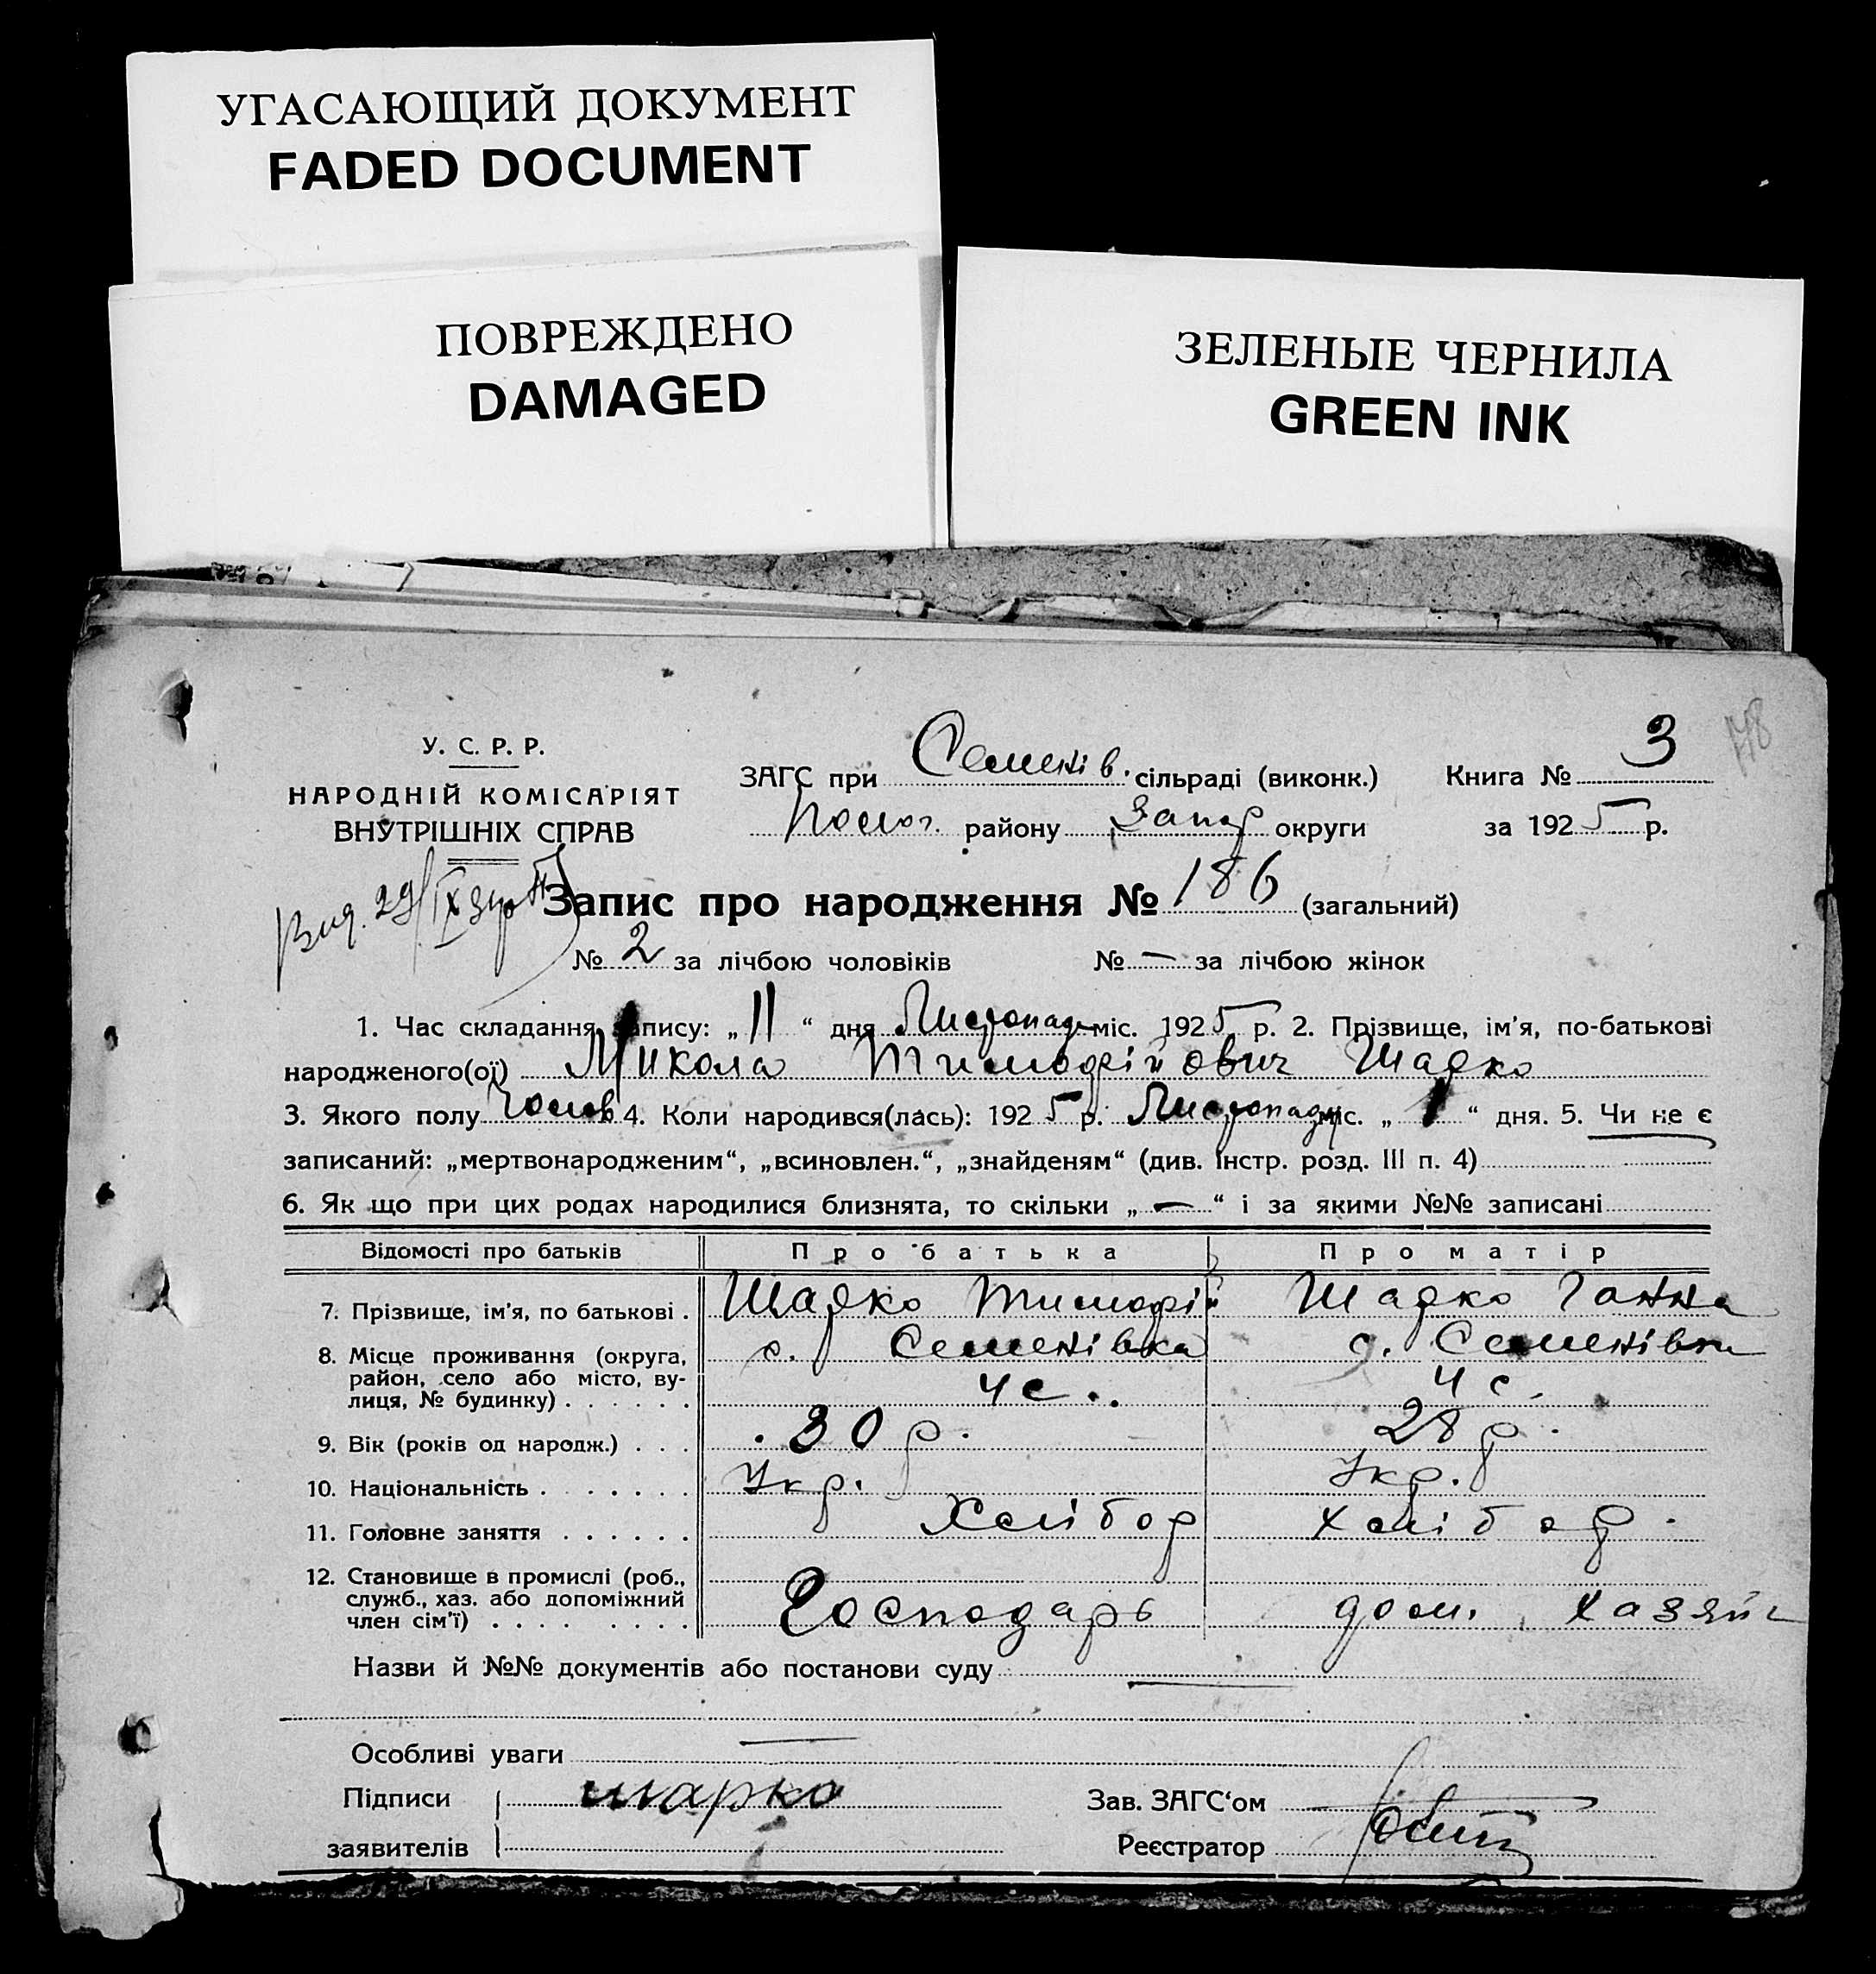 УГАСАЮЩИЙ ДОКУМЕНТ
FADED DOCUMENT
ПОВРЕЖДЕНО
DAMAGED
ЗЕЛЕНЫЕ ЧЕРНИЛА
GREEN INK
У. С. Р. Р.
НАРОДНІЙ КОМІСАРІЯТ
ВНУТРІШНІХ СПРАВ
ЗАГС при Семенів. сільраді (виконк.) Книга № 3
178
Полог. району Запор округи за 1925 р.
Вид. 29/IX
Запис про народження № 186 (загальний)
№ 2 за лічбою чоловіків № — за лічбою жінок
1. Час складання запису: „11“ дня Листопада міс. 1925 р. 2. Прізвище, ім'я, по-батькові
народженого(ої) Микола Тимофійович Шарко
3. Якого полу Чолов 4. Коли народився(лась): 1925 р. Листопаду міс. „1“ дня. 5. Чи не є
записаний: „мертвонародженим“, „всиновлен.“, „знайденям“ (див. Інстр. розд. III п. 4)
6. Як що при цих родах народилися близнята, то скільки „—“ і за якими №№ записані
Відомості про батьків Про батька Про матір
7. Прізвище, ім'я, по батькові . Шарко Тимофій Шарко Ганна
8. Місце проживання (округа, с. Семенівка с. Семенівка
район, село або місто, ву- ч с. ч с.
лиця, № будинку) . . . . . .
9. Вік (років од народж.) . . . 30 р. 28 р.
10. Національність . . . . . . . Укр. Укр.
11. Головне заняття . . . . . . Хлібор хлібор.
12. Становище в промислі (роб.,
служб., хаз. або допоміжний
член сім'ї) . . . . . . . . Господарь дом. хазяйг
Назви й №№ документів або постанови суду —
Особливі уваги —
Підписи шарко Зав. ЗАГС‘ом
заявителів Реєстратор